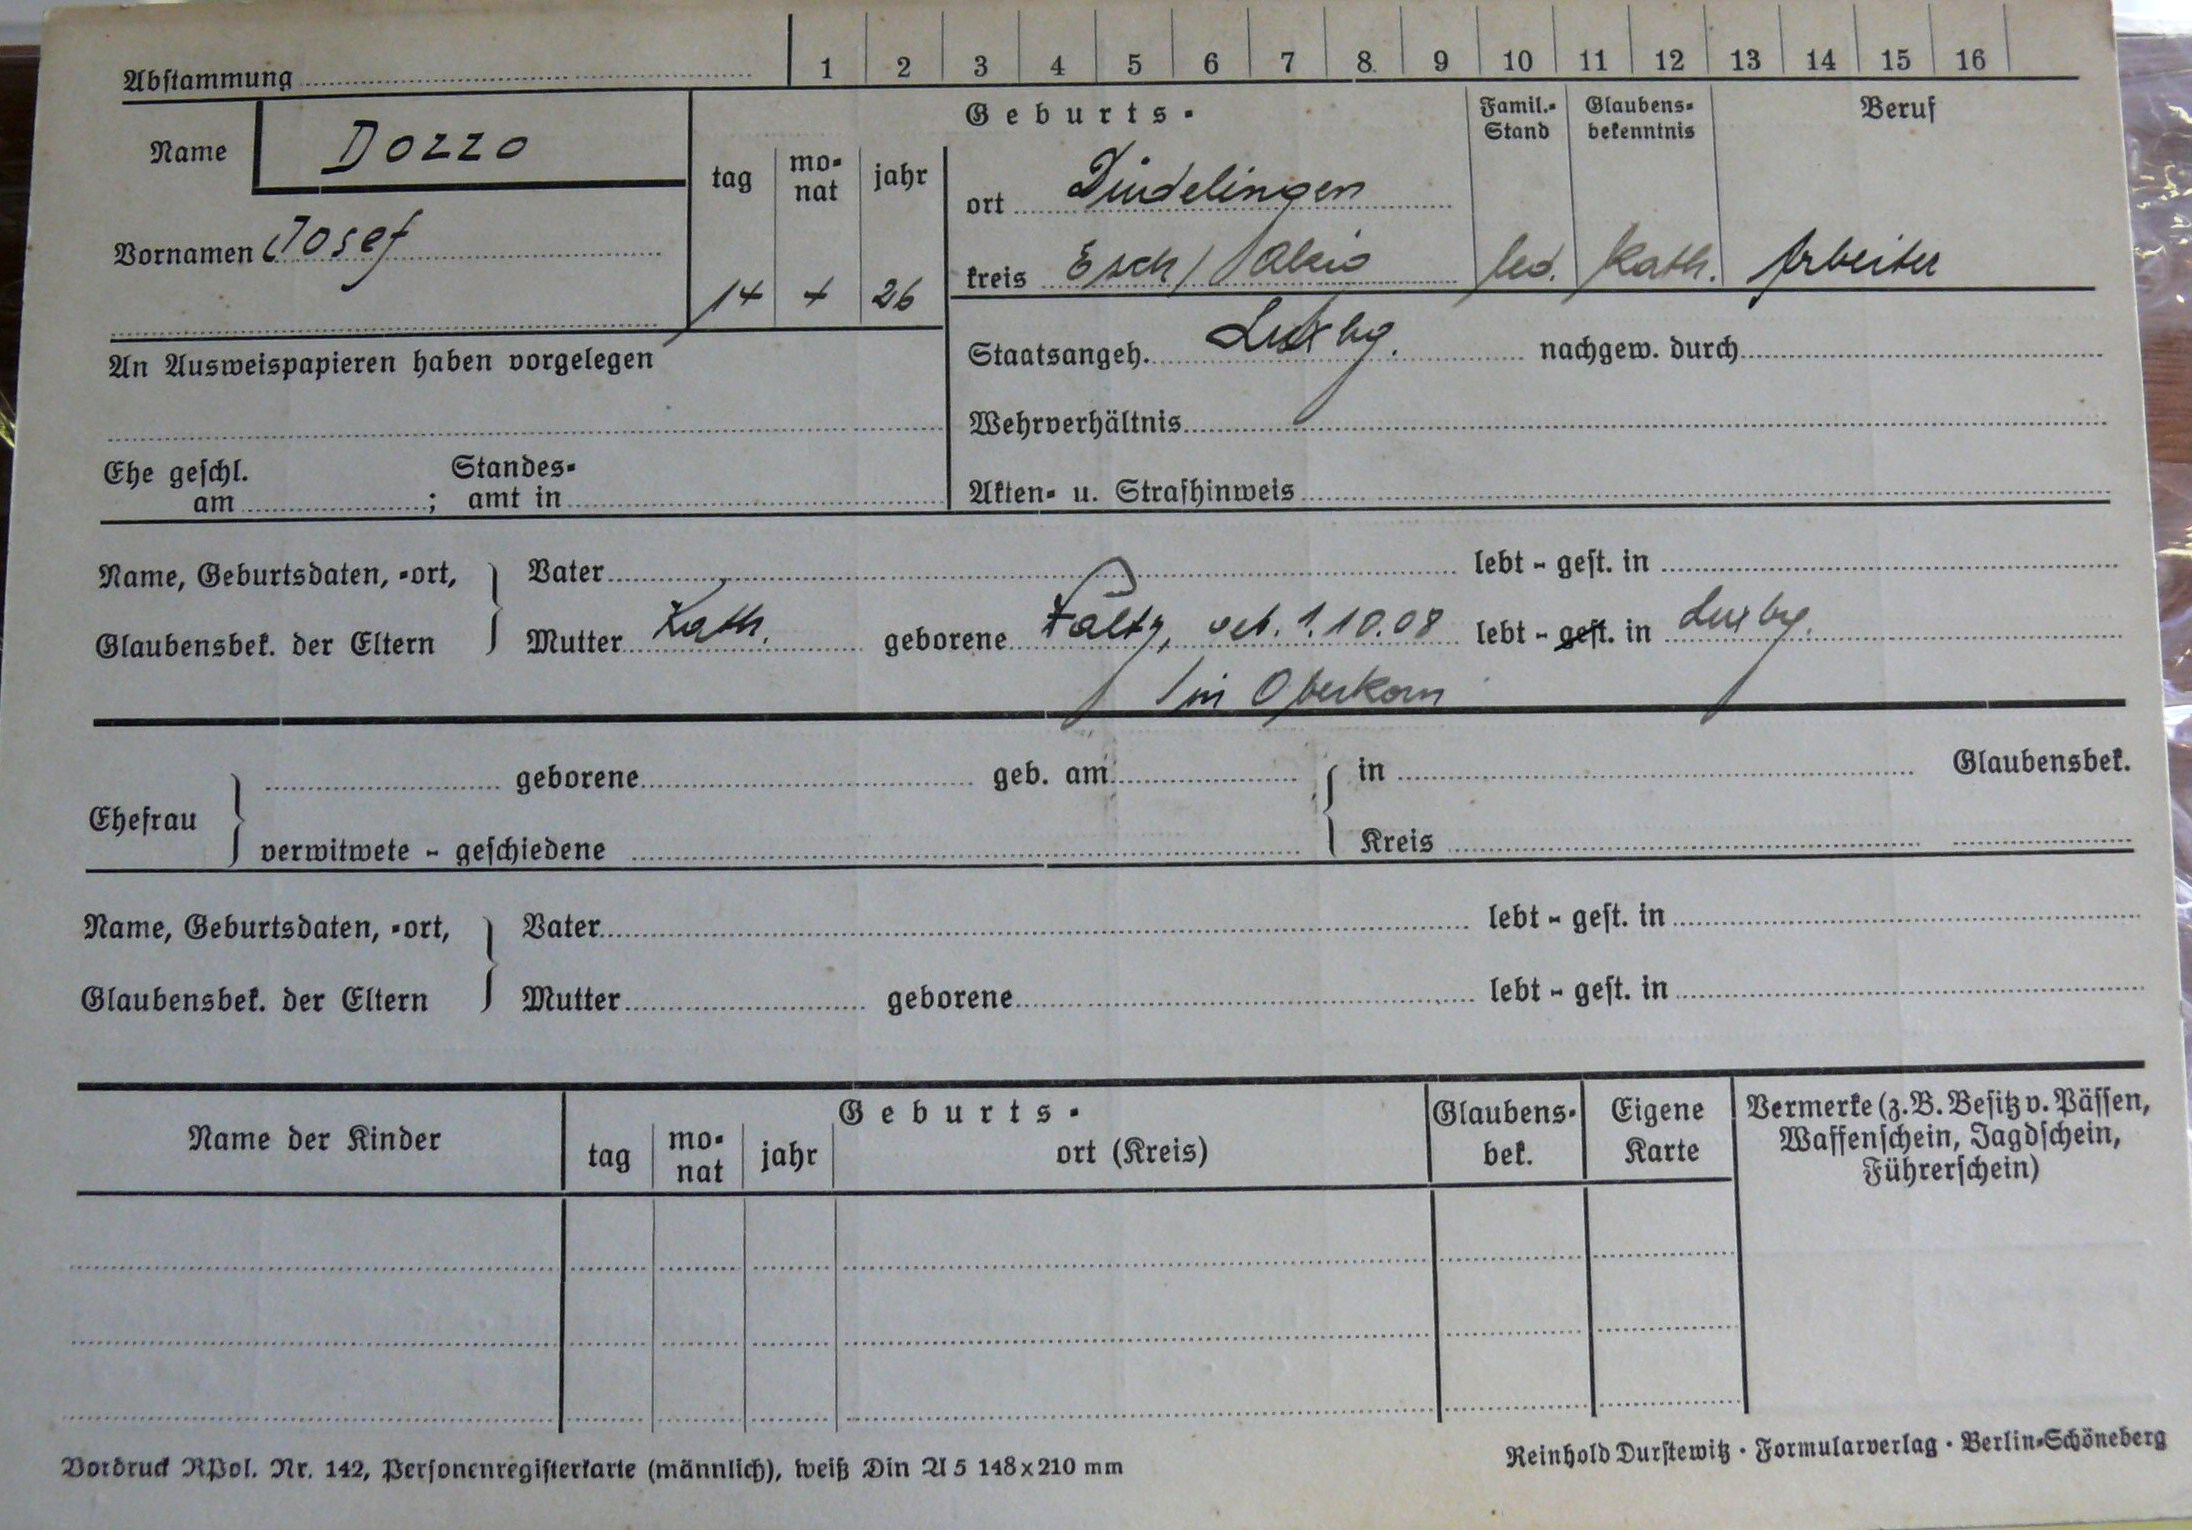 Abstammung 1 2 3 4 5 6 7 8 9 10 11 12 13 14 15 16
Name Dozzo
Vornamen Josef
Geburts-
tag monat jahr
14 4 26
ort Düdelingen
kreis Esch/Alzig
Famil.-Stand
led.
Glaubensbekenntnis
kath.
Beruf
Arbeiter
An Ausweispapieren haben vorgelegen
Staatsangeh. Luxbg. nachgew. durch
Wehrverhältnis
Ehe geschl. am ; Standesamt in
Akten- u. Strafhinweis
Name, Geburtsdaten, -ort, Glaubensbek. der Eltern
Vater lebt - gest. in
Mutter Kath. geborene Faltz, geb. 1.10.08 lebt - gest. in Luxbg.
in Oberkorn
Ehefrau geborene geb. am in Glaubensbek.
verwitwete - geschiedene Kreis
Name, Geburtsdaten, -ort, Glaubensbek. der Eltern
Vater lebt - gest. in
Mutter geborene lebt - gest. in
Name der Kinder
Geburts-
tag monat jahr ort (Kreis)
Glaubens-
bek.
Eigene
Karte
Vermerke (z. B. Besitz v. Pässen,
Waffenschein, Jagdschein,
Führerschein)
Vordruck RPol. Nr. 142, Personenregisterkarte (männlich), weiß Din A 5 148 x 210 mm
Reinhold Durstewitz · Formularverlag · Berlin-Schöneberg